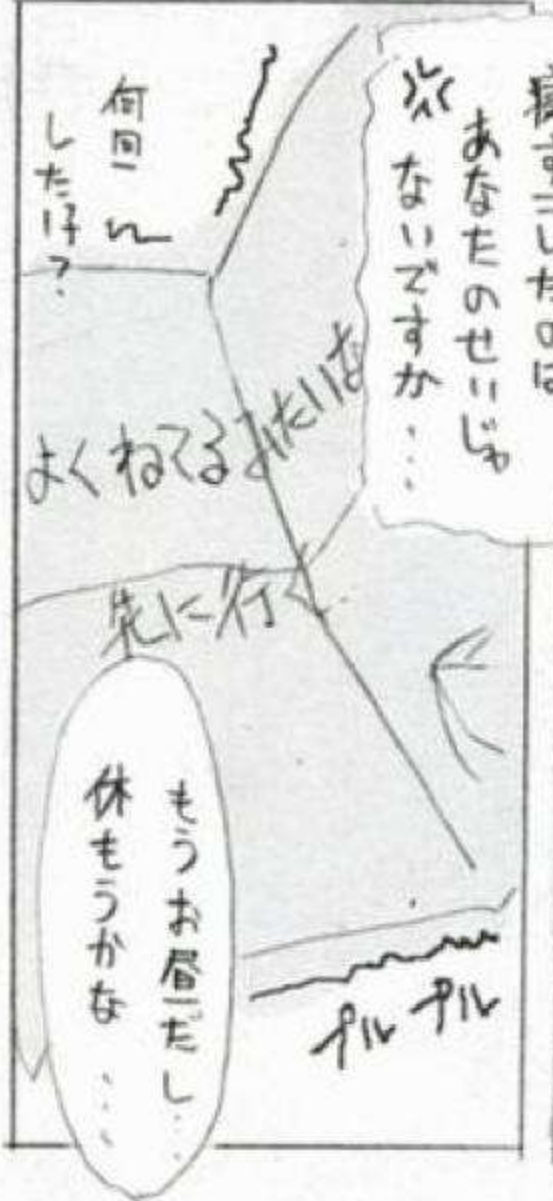 寝すごしたのは
あなたのせいじゃ
ないですか・・・
何回
した仔?
よくねてるみたいな
先に行く
もうお昼だし・・
休もうかな・・・
プル プル